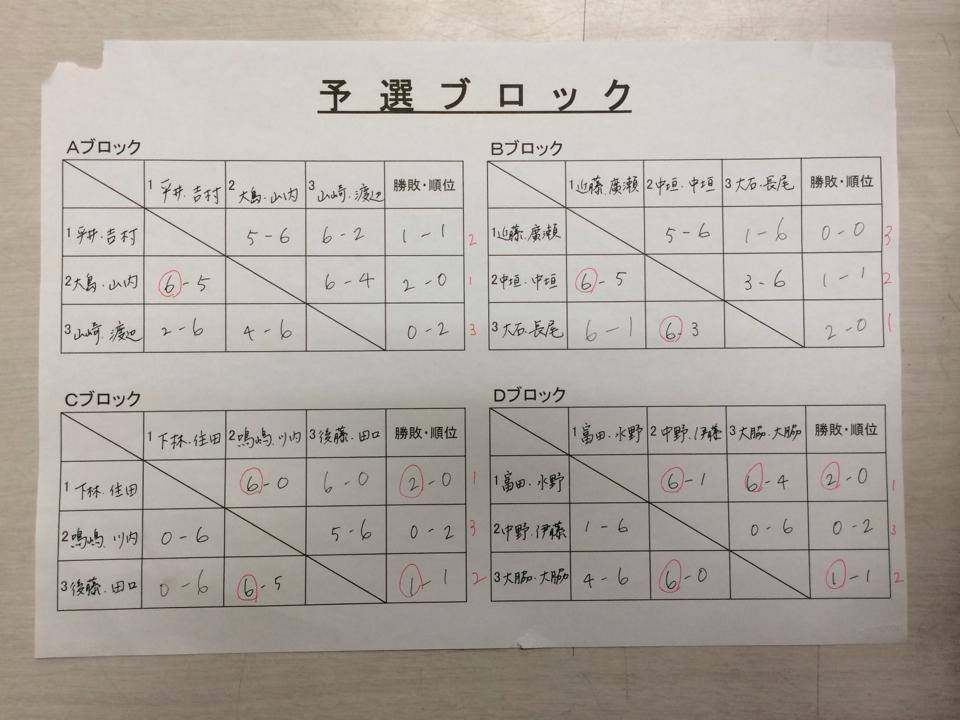 予選ブロック
Aブロック
1 平井・吉村 2 大島・山内 3 山崎・渡辺 勝敗・順位
1 平井・吉村 5-6 6-2 1-1 2
2 大島・山内 6-5 6-4 2-0 1
3 山崎・渡辺 2-6 4-6 0-2 3
Bブロック
1 近藤・廣瀬 2 中垣・中垣 3 大石・長尾 勝敗・順位
1 近藤・廣瀬 5-6 1-6 0-0 3
2 中垣・中垣 6-5 3-6 1-1 2
3 大石・長尾 6-1 6-3 2-0 1
Cブロック
1 下林・住田 2 鳴嶋・川内 3 後藤・田口 勝敗・順位
1 下林・住田 6-0 6-0 2-0 1
2 鳴嶋・川内 0-6 5-6 0-2 3
3 後藤・田口 0-6 6-5 1-1 2
Dブロック
1 富田・水野 2 中野・伊藤 3 大脇・大脇 勝敗・順位
1 富田・水野 6-1 6-4 2-0 1
2 中野・伊藤 1-6 0-6 0-2 3
3 大脇・大脇 4-6 6-0 1-1 2